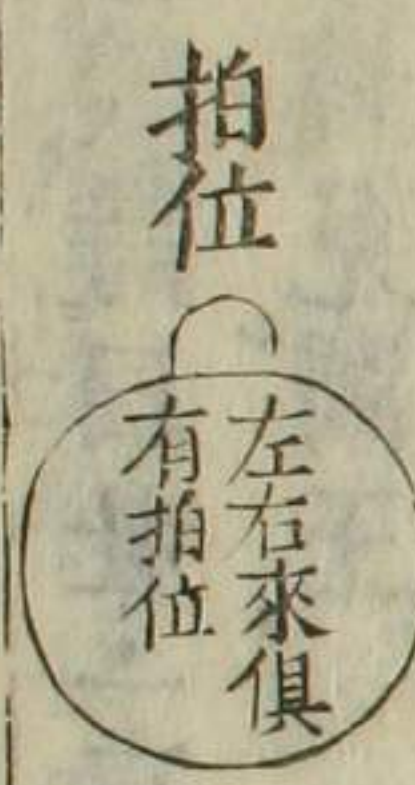 拍位
左右來俱
有拍位